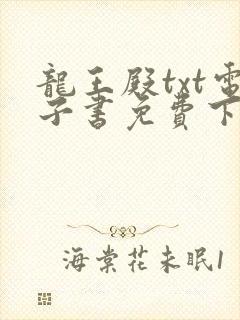 龍王殿txt電
子書免費下
海棠花未眠1